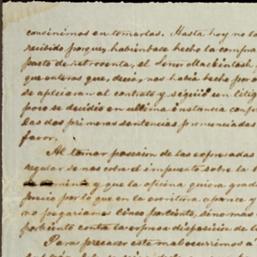 convinimos en tomarlas. Hasta hoy no la
recibido porque, habiéndose hecho la compra
pacto de retroventa, el Señor Mackintosh
que enteros que, decia, nos habia hecho por a
se aplicaran al contrato, y siguió un litig
pero se decidió en ultima instancia confir
las dos primeras sentencias pronunciadas
favor.
Al tomar posesion de las espresadas
regular se nos cobra el impuesto sobre la
y que la oficina quiera grad
precio por lo que en la escritura aparece y
no pagariamos cinco por ciento, sino mas
por ciento contra la espresa disposicion de l
Para precaver este mal ocurrimos á